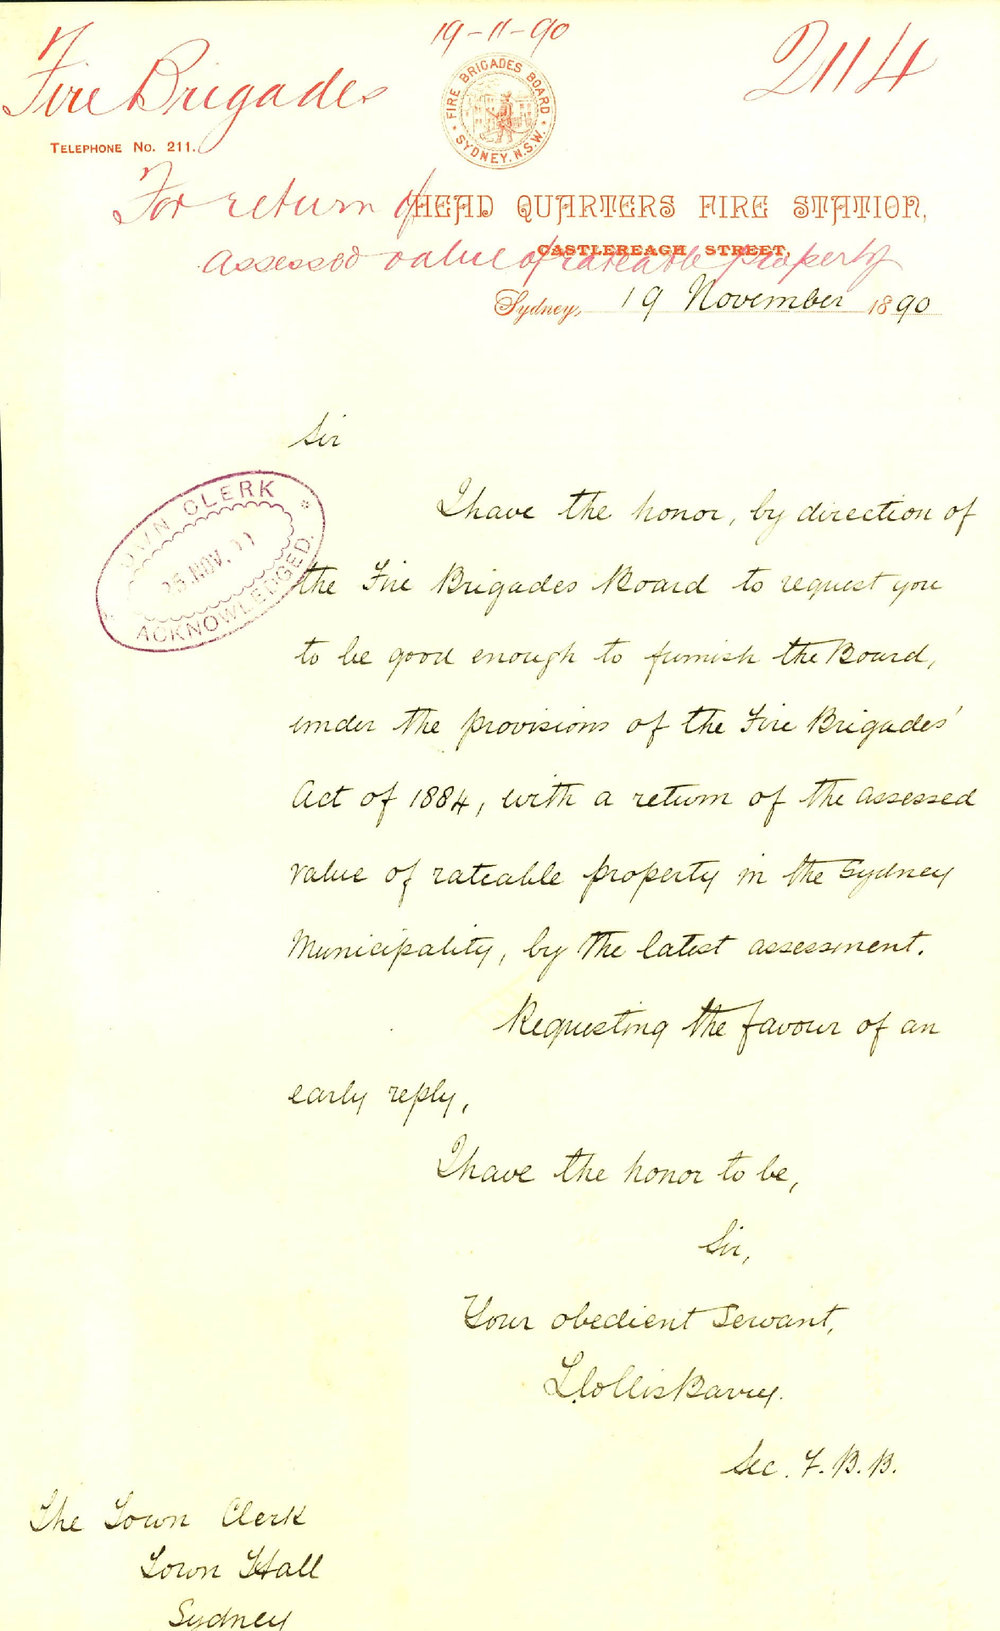 19-11-90
Fire Brigades
2114
FIRE BRIGADES BOARD
SYDNEY. N.S.W.
TELEPHONE No. 211.
For return of
HEAD QUARTERS FIRE STATION,
CASTLEREAGH STREET,
assessed value of rateable property
Sydney, 19 November 1890
Sir
TOWN CLERK
NOV.
ACKNOWLEDGED.
I have the honor, by direction of
the Fire Brigades Board to request you
to be good enough to furnish the Board,
under the provisions of the Fire Brigades'
Act of 1884, with a return of the assessed
value of rateable property in the Sydney
Municipality, by the latest assessment.
Requesting the favour of an
early reply,
I have the honor to be,
Sir,
Your obedient Servant,
Sec. F.B.B.
The Town Clerk
Town Hall
Sydney